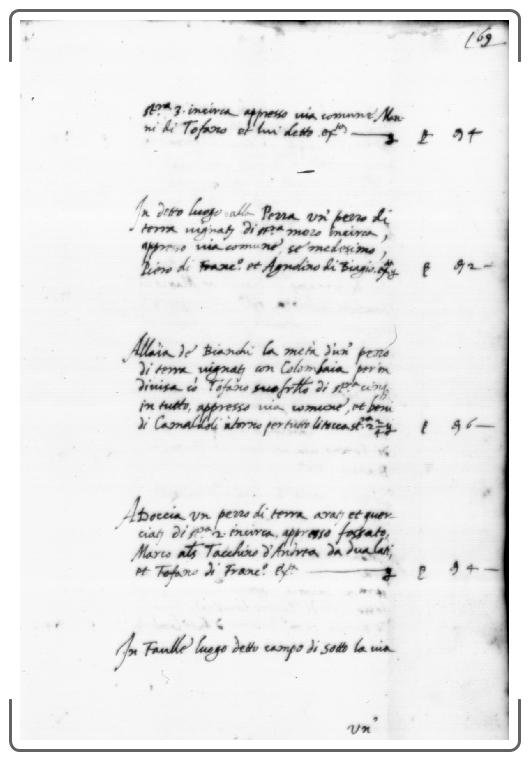 169
st.ra 3. incirca appresso via comune, Man-
ni di Tofano et lui detto.
In detto luogo alla Perra un' pezzo di
terra vignat. di st.ra mezo incirca,
appresso via comune, se medesimo,
Piero di Franc.o et Agnolino di Biagio.
Allaia de Bianchi la metà d'un' pezzo
di terra vignat. con Colombaia per in
divisa cō Tofano suo frllo di st.ra cinq.
in tutto, appresso via comune, et beni
di Camaldoli atorno per tutto li tocca st.ra 2
A Doccia un pezzo di terra arat. et quer-
ciat. di st.ra 2 incirca, appresso fossato,
Marco als Tacchino d'Andrea da dua lati,
et Tofano di Franc.o
In Faulle luogo detto campo di sotto la via
un'